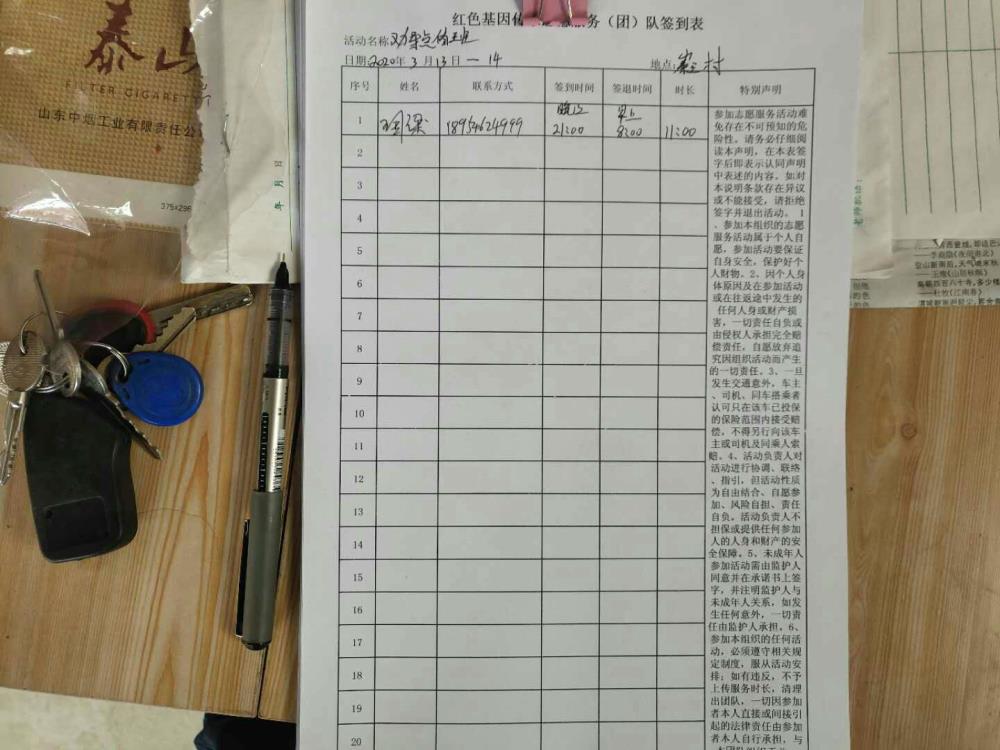 泰山
FILTER CIGARETTE
山东中烟工业有限责任公
375×296
年 月 日
红色基因传 服务(团)队签到表
活动名称
日期 2020年3月13日—14
地点: 村
序号 姓名 联系方式 签到时间 签退时间 时长 特别声明
1 18954624999 晚上21:00 早上8:00 11:00
2
3
4
5
6
7
8
9
10
11
12
13
14
15
16
17
18
19
20
参加志愿服务活动难
免存在不可预知的危
险性。请务必仔细阅
读本声明,在本表签
字后即表示认同声明
中表述的内容。如对
本说明条款存在异议
或不能接受,请拒绝
签字并退出活动。 1
、参加本组织的志愿
服务活动属于个人自
愿,参加活动要保证
自身安全,保护好个
人财物。2、因个人身
体原因及在参加活动
或在往返途中发生的
任何人身或财产损
害,一切责任自负或
由侵权人承担完全赔
偿责任,自愿放弃追
究因组织活动而产生
的一切责任。3、一旦
发生交通意外,车主
、司机、同车搭乘者
认可只在该车已投保
的保险范围内接受赔
偿,不得另行向该车
主或司机及同乘人索
赔。4、活动负责人对
活动进行协调、联络
、指引,但活动性质
为自由结合、自愿参
加、风险自担、责任
自负。活动负责人不
担保或提供任何参加
人的人身和财产的安
全保障。5、未成年人
参加活动需由监护人
同意并在承诺书上签
字,并注明监护人与
未成年人关系,如发
生任何意外,一切责
任由监护人承担。6、
参加本组织的任何活
动,必须遵守相关规
定制度,服从活动安
排;如有违反,不予
上传服务时长,清理
出团队,一切因参加
者本人直接或间接引
起的法律责任由参加
者本人自行承担,与